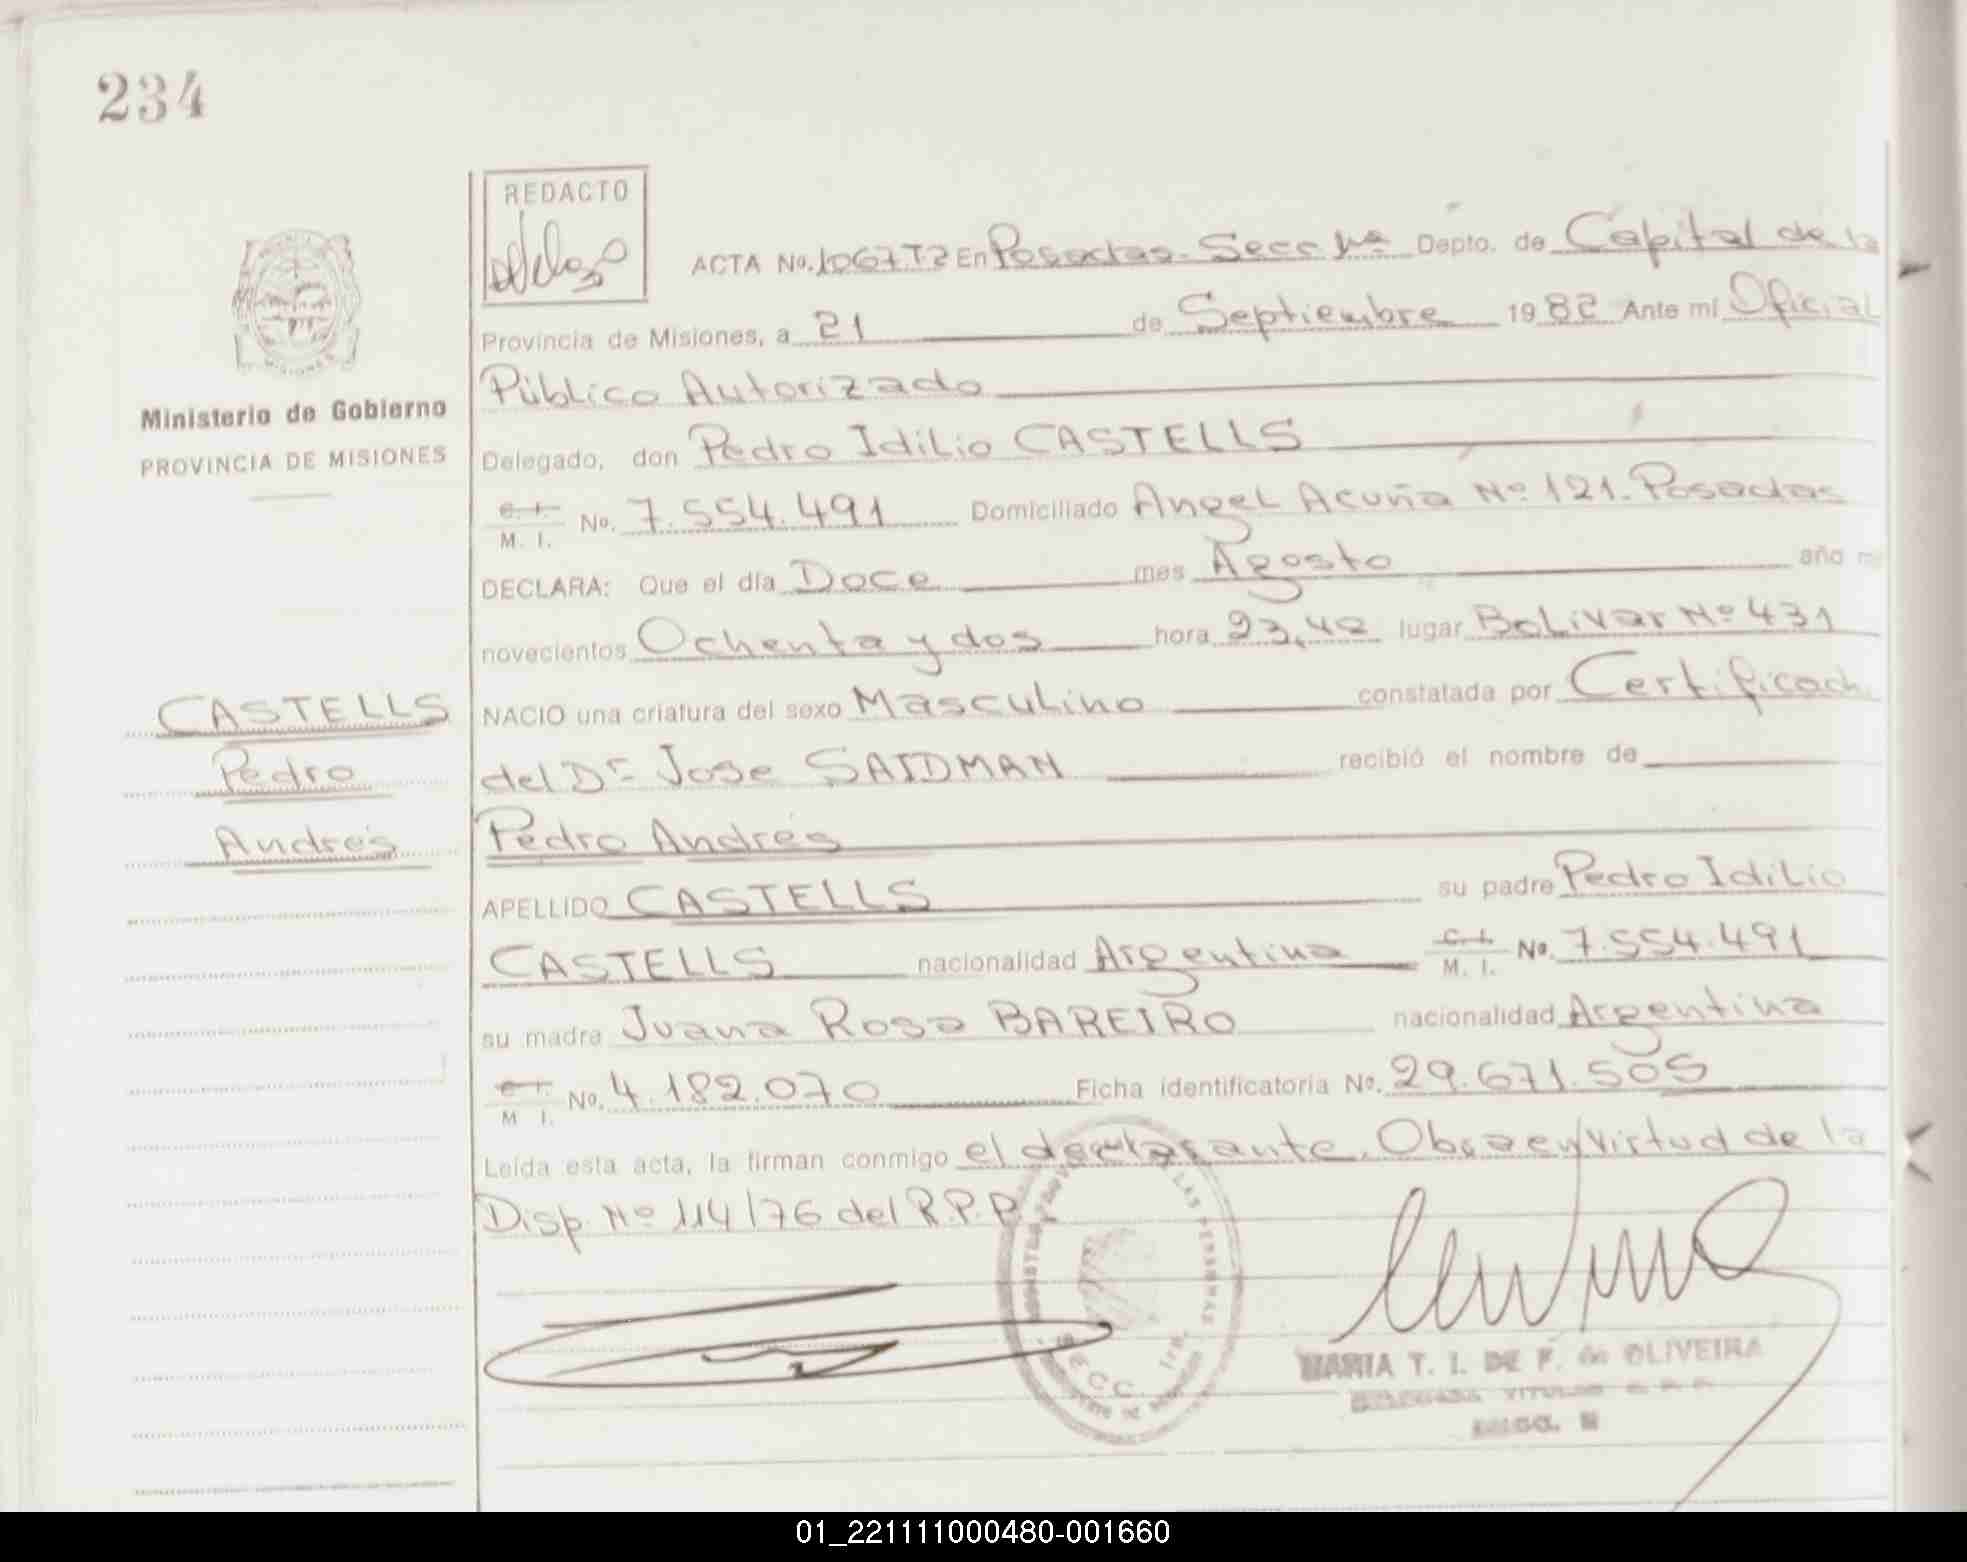 234
REDACTO
ACTA No. 1067.T2 En Posadas. Secc Depto. de Capital de la
Provincia de Misiones, a 21 de Septiembre 1982 Ante mí Oficial
Público Autorizado
Ministerio de Gobierno
PROVINCIA DE MISIONES
Delegado, don Pedro Idilio CASTELLS
C. I. M. I. No. 7.554.491 Domiciliado Angel Acuña Nº 121. Posadas
DECLARA: Que el día Doce mes Agosto año mi
novecientos Ochenta y dos hora 23,42 lugar Bolivar Nº 431
CASTELLS
Pedro
Andrés
NACIO una criatura del sexo Masculino constatada por Certificado
del Dr Jose SAIDMAN recibió el nombre de
Pedro Andrés
APELLIDO CASTELLS su padre Pedro Idilio
CASTELLS nacionalidad Argentina C. I. M. I. No. 7.554.491
su madre Juana Rosa BAREIRO nacionalidad Argentina
C. I. M I. No. 4.182.070 Ficha identificatoria No. 29.671.505
Leída esta acta, la firman conmigo el declarante. Obs: en virtud de la
Disp. Nº 114/76 del R.P.P.
LAS PERSONAS
SECC. 1ra.
MARIA T. I. DE F. de OLIVEIRA
01_221111000480-001660